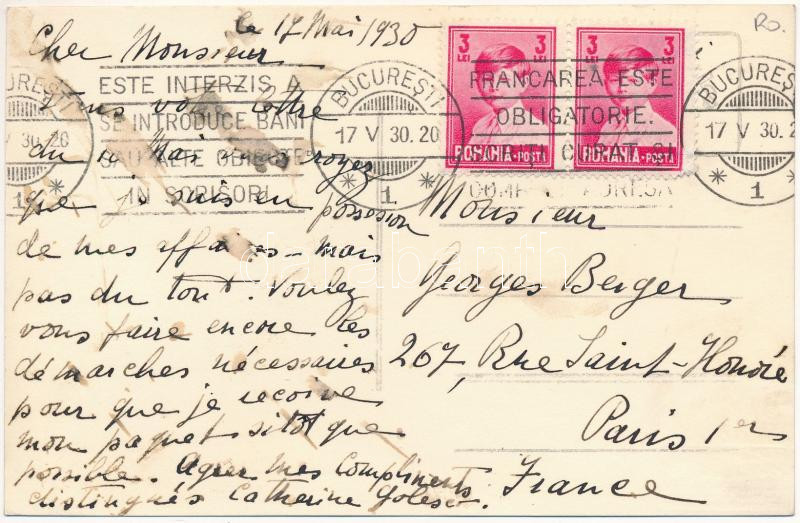 le 17 Mai 1930
Cher Monsieur
lettre
du Mai croyez
que je suis en possession
de mes affaires - mais
pas du tout. Voulez
vous faire encore les
démarches nécessaires
pour que je recoive
mon paquet sitôt que
possible. Agréez mes compliments
distingués Catherine Golesco.
RO.
BUCUREȘTI
17 V 30.20
1
ESTE INTERZIS A
SE INTRODUCE BANI
SAU ALTE OBIECTE
IN SCRISORI
BUCUREȘTI
17 V 30.20
1
FRANCAREA ESTE
OBLIGATORIE.
BUCUREȘTI
17 V 30.2
1
3 LEI 3 LEI
ROMANIA-POSTA
3 LEI 3 LEI
ROMANIA-POSTA
Monsieur
Georges Berger
267, Rue Saint-Honoré
Paris 1er
France
darabanth